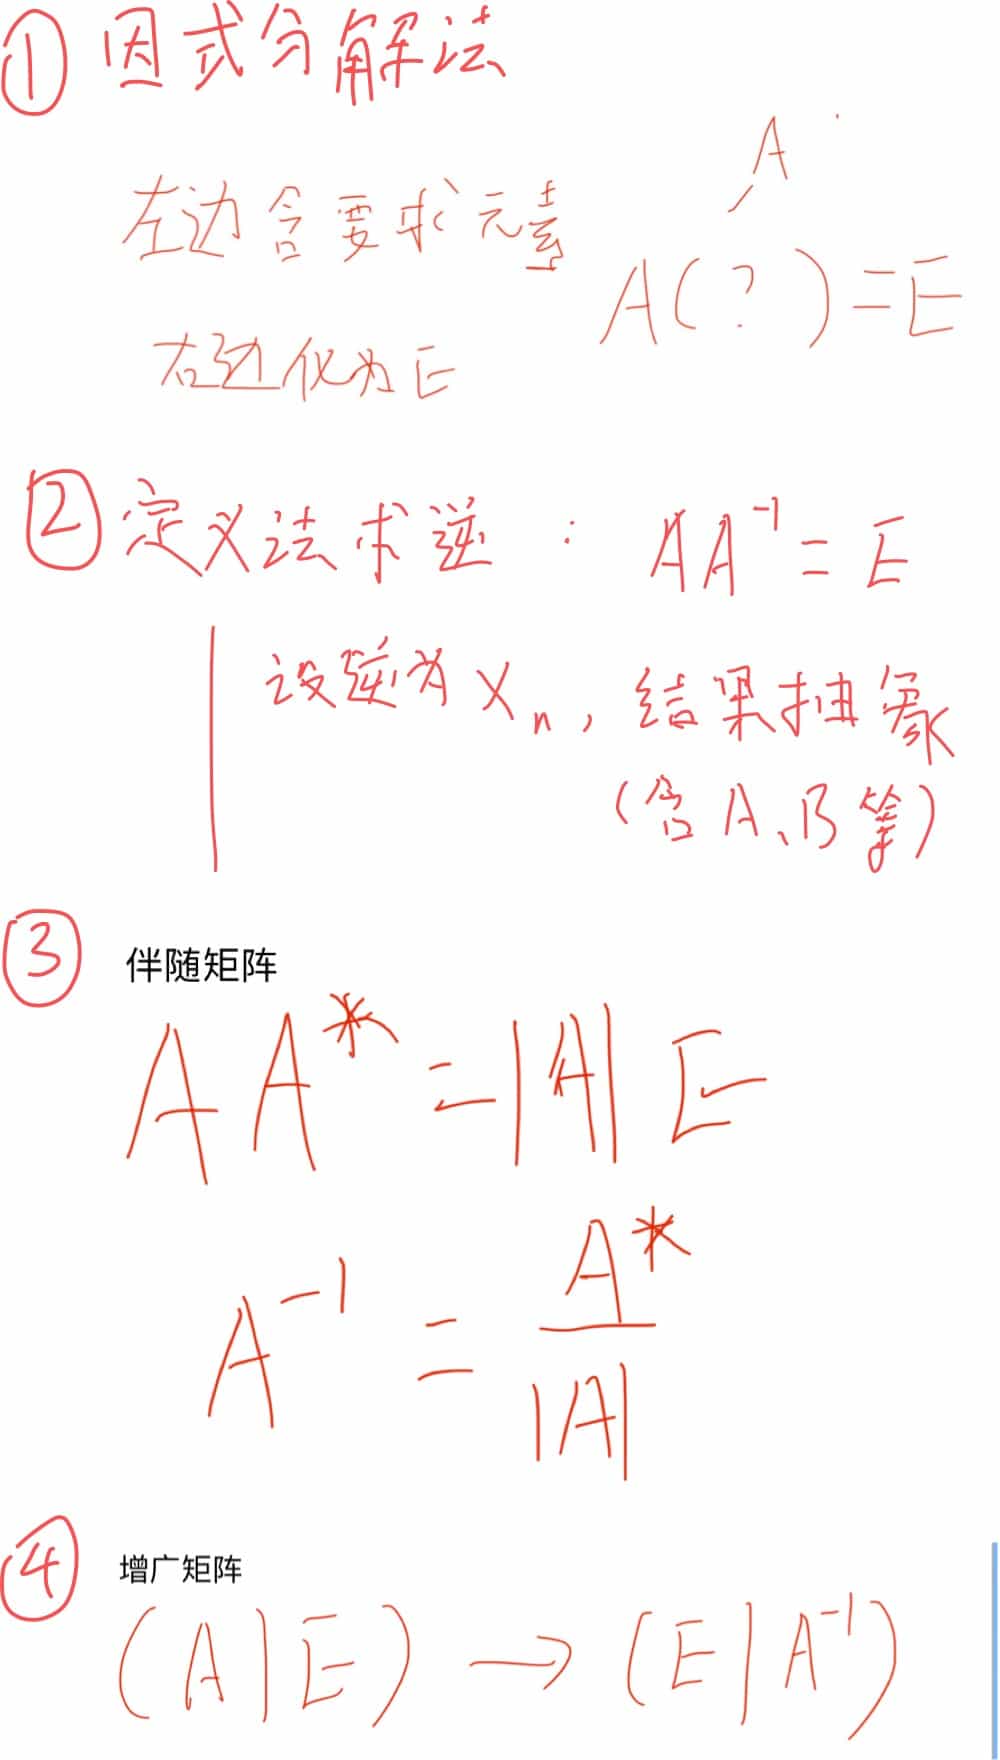 ① 因式分解法
A
左边含要求元素
A(?)=E
右边化为E
② 定义法求逆: AA⁻¹=E
设逆为Xₙ, 结果抽象
(含A、B等)
③ 伴随矩阵
AA*=|A|E
A⁻¹=A*/|A|
④ 增广矩阵
(A|E)→(E|A⁻¹)